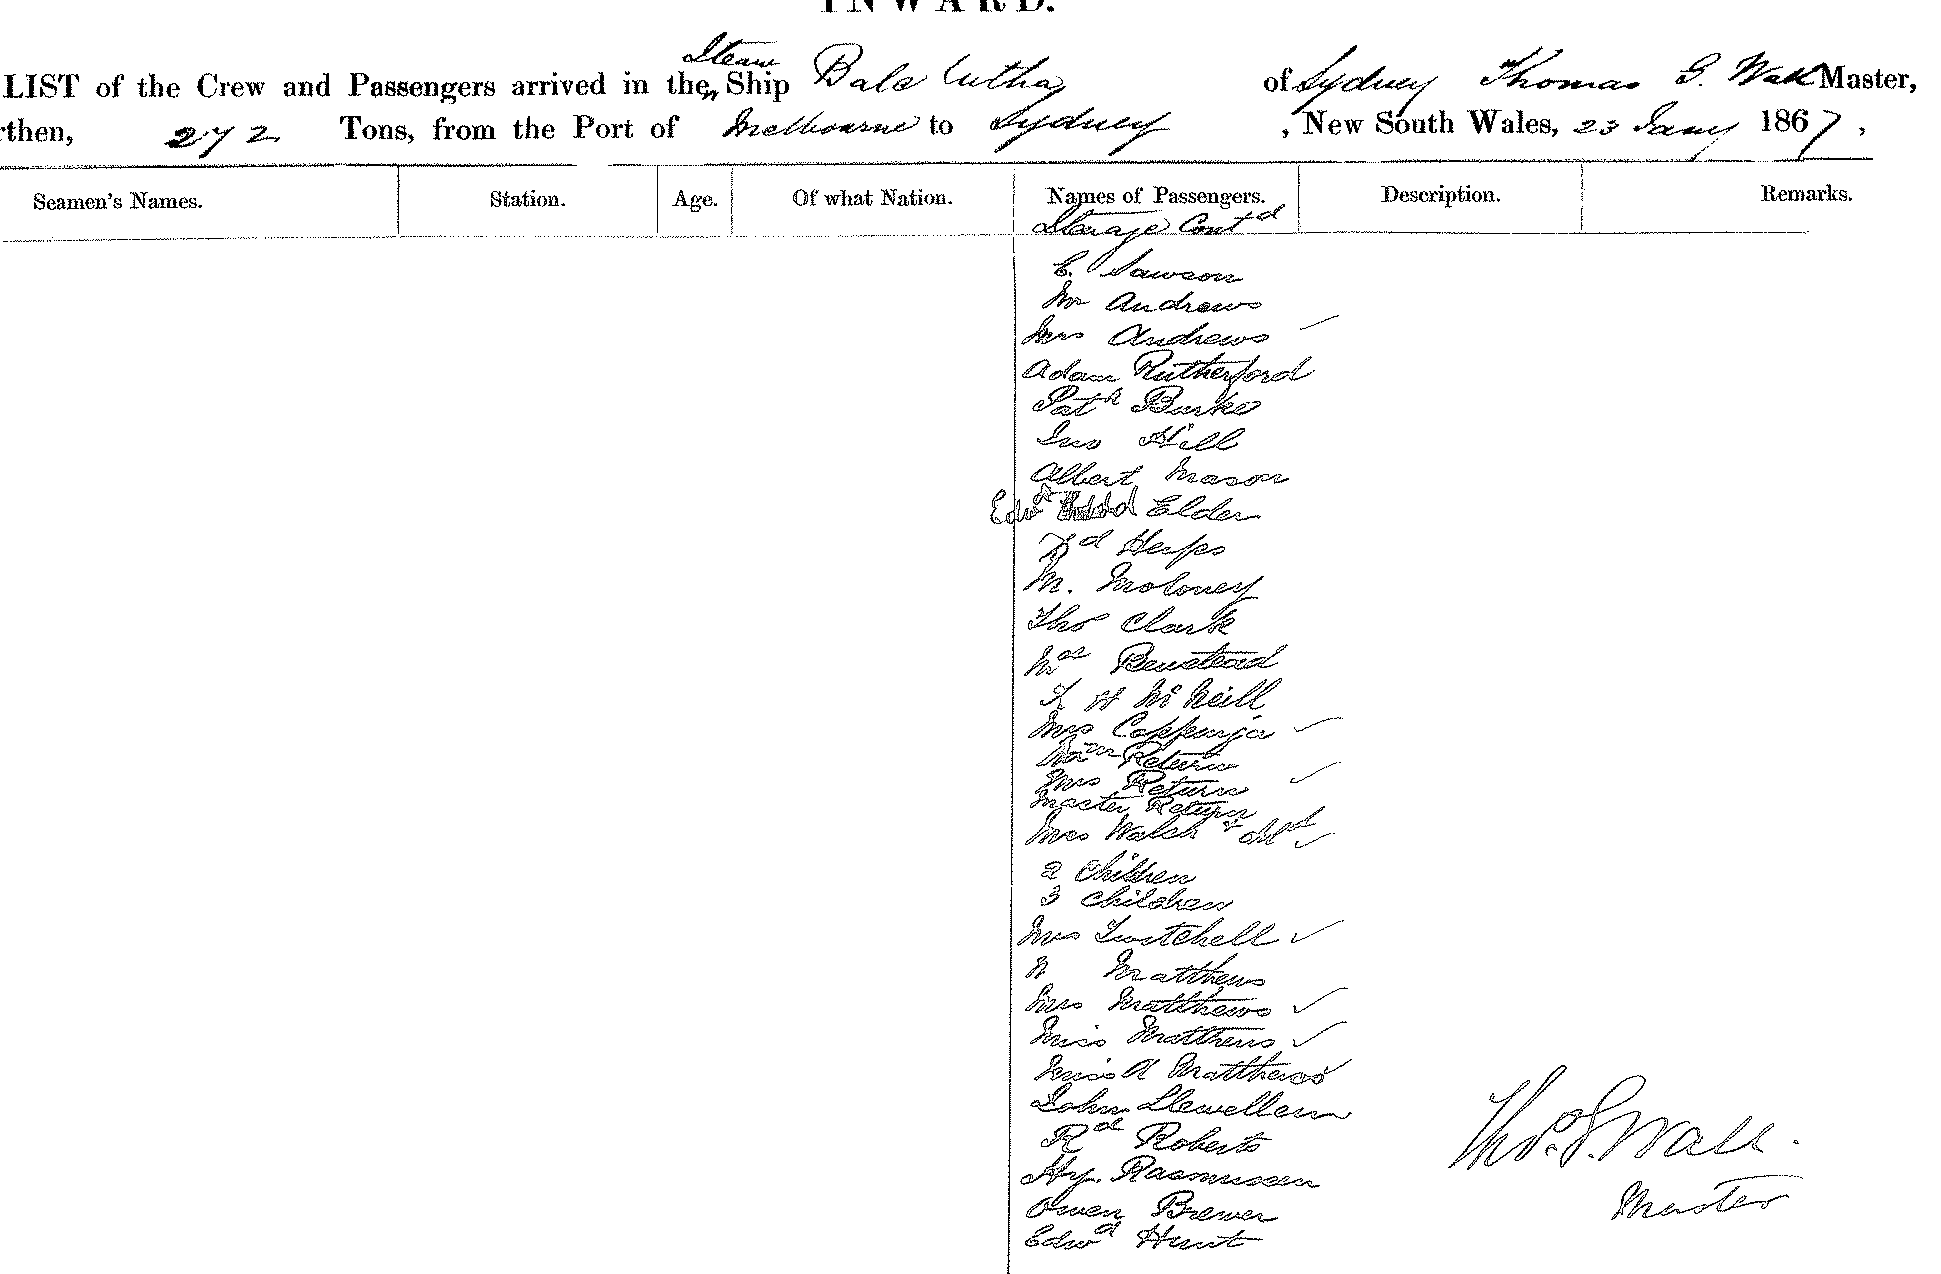 INWARD.
LIST of the Crew and Passengers arrived in the Steam Ship Balclutha of Sydney Thomas S. Wall Master,
rthen, 272 Tons, from the Port of Melbourne to Sydney, New South Wales, 23 Jany 1867,
Seamen's Names. Station. Age. Of what Nation. Names of Passengers. Description. Remarks.
Sterage Contd
C. Lawson
Mr Andrews
Mrs Andrews
Adam Rutherford
Patk Burke
Jno Hill
Albert Mason
Edwd Elder
Rd Heyes
M. Moloney
Thos Clark
Benstead
H McNeill
Mrs Coppenja
Wm Return
Mrs Return
Master Return
Mrs Walsh &
2 Children
3 Children
Mrs Twitchell
Matthews
Mrs Matthews
Miss Matthews
Miss A Matthews
John Llewellen
Rd Roberts
Hy. Rasmussen
Owen Brewer
Edwd Hunt
Thos. S. Wall.
Master